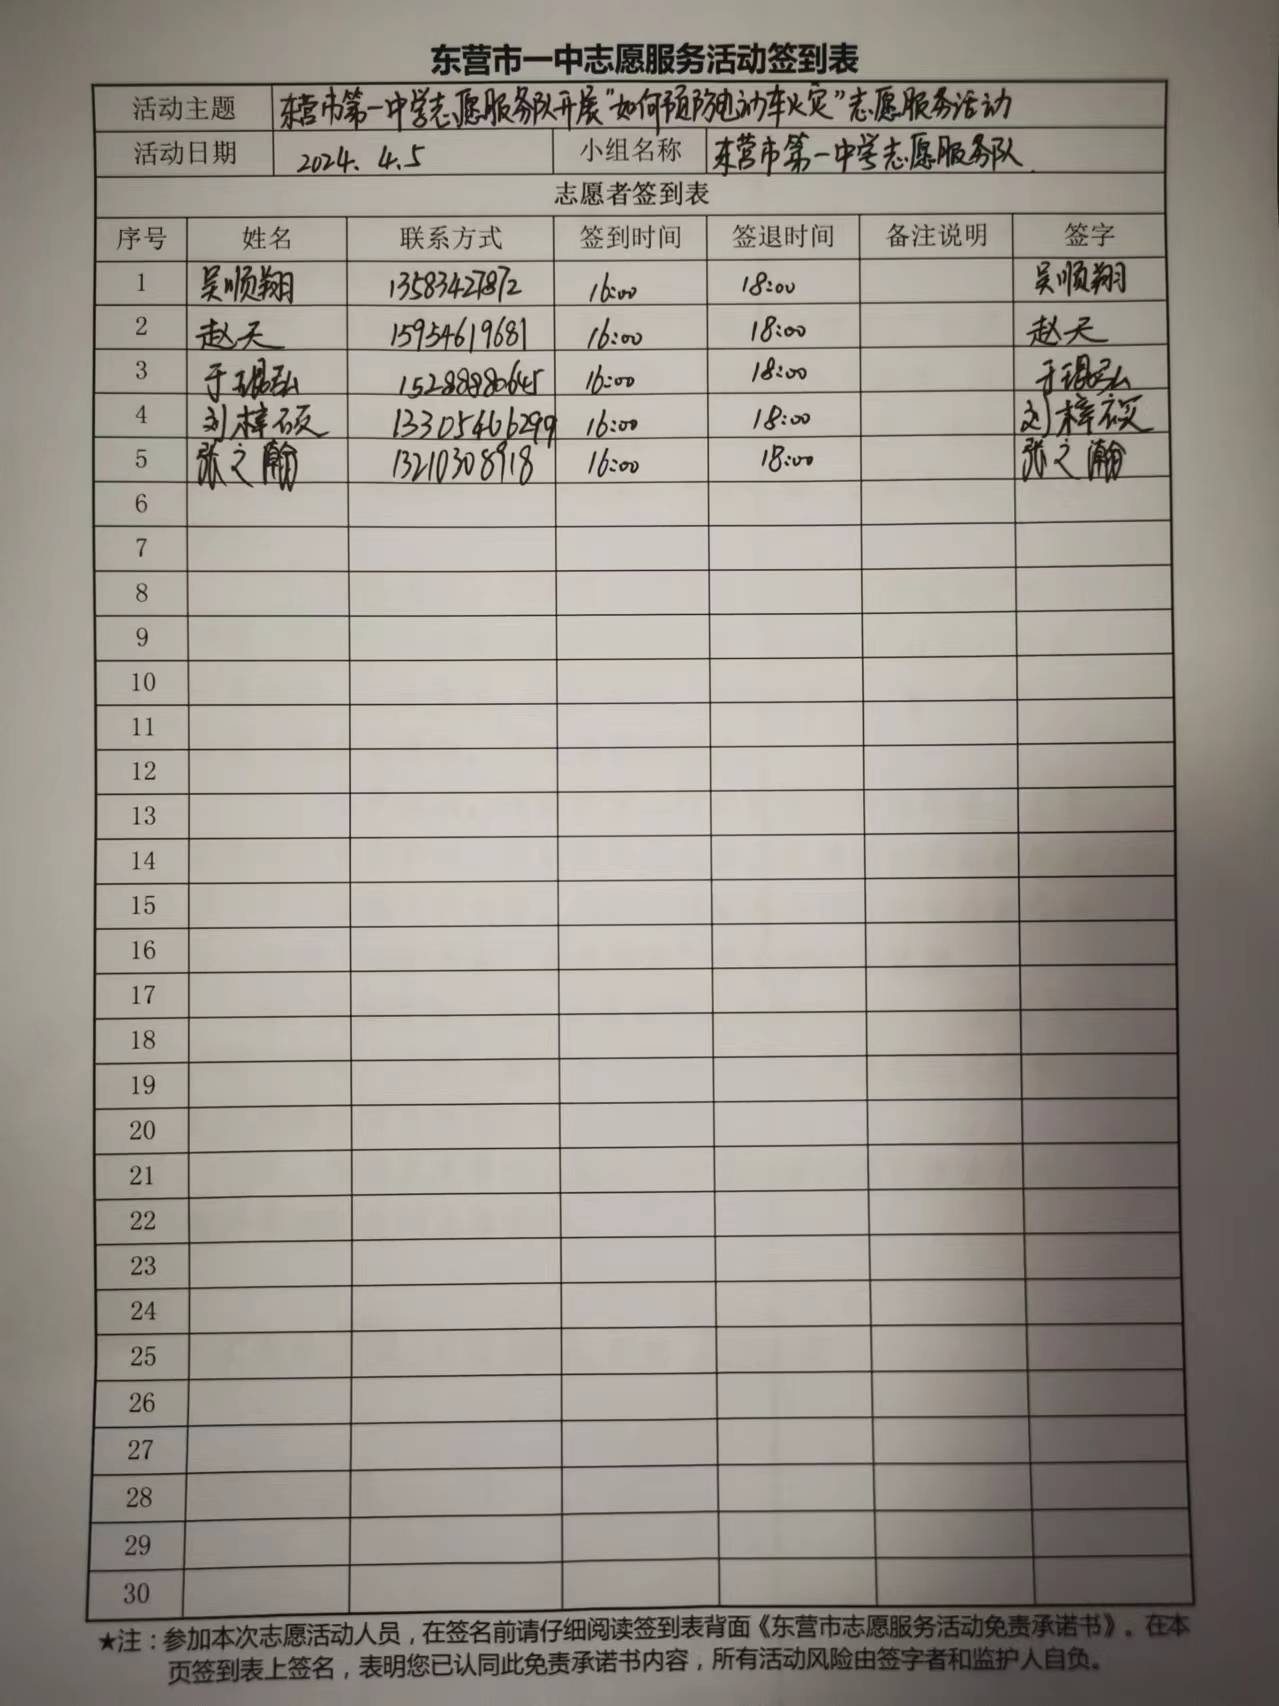 东营市一中志愿服务活动签到表
活动主题 东营市第一中学志愿服务队开展"如何预防电动车火灾"志愿服务活动
活动日期 2024.4.5 小组名称 东营市第一中学志愿服务队
志愿者签到表
序号 姓名 联系方式 签到时间 签退时间 备注说明 签字
1 吴顺翔 13583427872 16:00 18:00 吴顺翔
2 赵天 15954619681 16:00 18:00 赵天
3 于琨弘 15288880645 16:00 18:00 于琨弘
4 刘梓硕 13305466299 16:00 18:00 刘梓硕
5 张之瀚 13210308918 16:00 18:00 张之瀚
6
7
8
9
10
11
12
13
14
15
16
17
18
19
20
21
22
23
24
25
26
27
28
29
30
★注：参加本次志愿活动人员，在签名前请仔细阅读签到表背面《东营市志愿服务活动免责承诺书》。在本
页签到表上签名，表明您已认同此免责承诺书内容，所有活动风险由签字者和监护人自负。